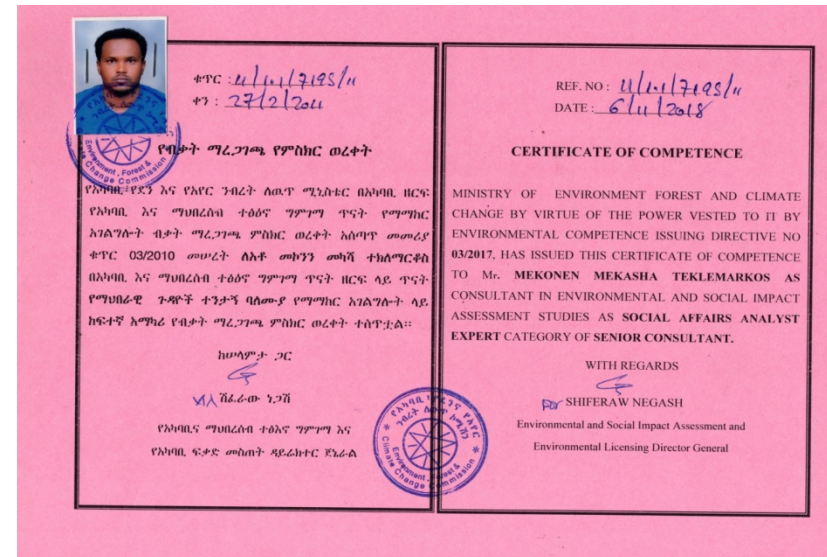 ቁጥር :
ቀን : 27/2/2011
የብቃት ማረጋገጫ የምስክር ወረቀት
የአካባቢ፣ የደን እና የአየር ንብረት ለዉጥ ሚኒስቴር በአካባቢ ዘርፍ
የአካባቢ እና ማህበረሰብ ተፅዕኖ ግምገማ ጥናት የማማከር
አገልግሎት ብቃት ማረጋገጫ ምስክር ወረቀት አሰጣጥ መመሪያ
ቁጥር 03/2010 መሠረት ለአቶ መኮንን መካሻ ተክለማርቆስ
በአካባቢ እና ማህበረሰብ ተፅዕኖ ግምገማ ጥናት ዘርፍ ላይ ጥናት
የማህበራዊ ጉዳዮች ተንታኝ ባለሙያ የማማከር አገልግሎት ላይ
ከፍተኛ አማካሪ የብቃት ማረጋገጫ ምስክር ወረቀት ተሰጥቷል፡፡
ከሠላምታ ጋር
ሺፈራው ነጋሽ
የአካባቢና ማህበረሰብ ተፅእኖ ግምገማ እና
የአካባቢ ፍቃድ መስጠት ዳይሬክተር ጀኔራል
REF. NO :
DATE : 6/11/2018
CERTIFICATE OF COMPETENCE
MINISTRY OF ENVIRONMENT FOREST AND CLIMATE
CHANGE BY VIRTUE OF THE POWER VESTED TO IT BY
ENVIRONMENTAL COMPETENCE ISSUING DIRECTIVE NO
03/2017, HAS ISSUED THIS CERTIFICATE OF COMPETENCE
TO Mr. MEKONEN MEKASHA TEKLEMARKOS AS
CONSULTANT IN ENVIRONMENTAL AND SOCIAL IMPACT
ASSESSMENT STUDIES AS SOCIAL AFFAIRS ANALYST
EXPERT CATEGORY OF SENIOR CONSULTANT.
WITH REGARDS
SHIFERAW NEGASH
Environmental and Social Impact Assessment and
Environmental Licensing Director General
Environment, Forest &
Climate Change Commission